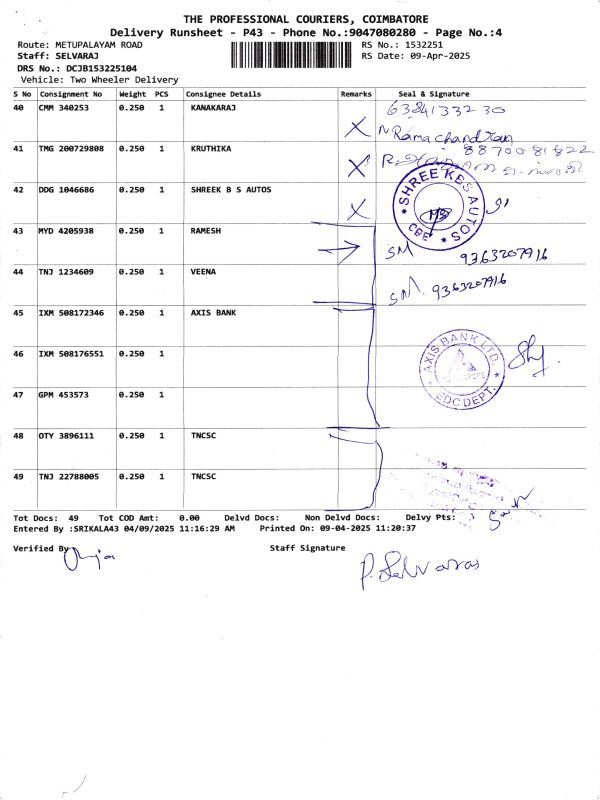 THE PROFESSIONAL COURIERS, COIMBATORE
Delivery Runsheet - P43 - Phone No.:9047080280 - Page No.:4
Route: METUPALAYAM ROAD RS No.: 1532251
Staff: SELVARAJ RS Date: 09-Apr-2025
DRS No.: DCJB153225104
Vehicle: Two Wheeler Delivery
S No Consignment No Weight PCS Consignee Details Remarks Seal & Signature
40 CMM 340253 0.250 1 KANAKARAJ 6384133230
N Ramachandran
41 TMG 200729808 0.250 1 KRUTHIKA 8870081822
42 DDG 1046686 0.250 1 SHREEK B S AUTOS SHREE KBS AUTOS CBE
43 MYD 4205938 0.250 1 RAMESH SM 9363207916
44 TNJ 1234609 0.250 1 VEENA SM. 9363207916
45 IXM 508172346 0.250 1 AXIS BANK AXIS BANK LTD.
46 IXM 508176551 0.250 1
47 GPM 453573 0.250 1 EDC DEPT.
48 OTY 3896111 0.250 1 TNCSC
49 TNJ 22788005 0.250 1 TNCSC
Tot Docs: 49 Tot COD Amt: 0.00 Delvd Docs: Non Delvd Docs: Delvy Pts:
Entered By :SRIKALA43 04/09/2025 11:16:29 AM Printed On: 09-04-2025 11:20:37
Verified By Staff Signature
P. Selvaraj